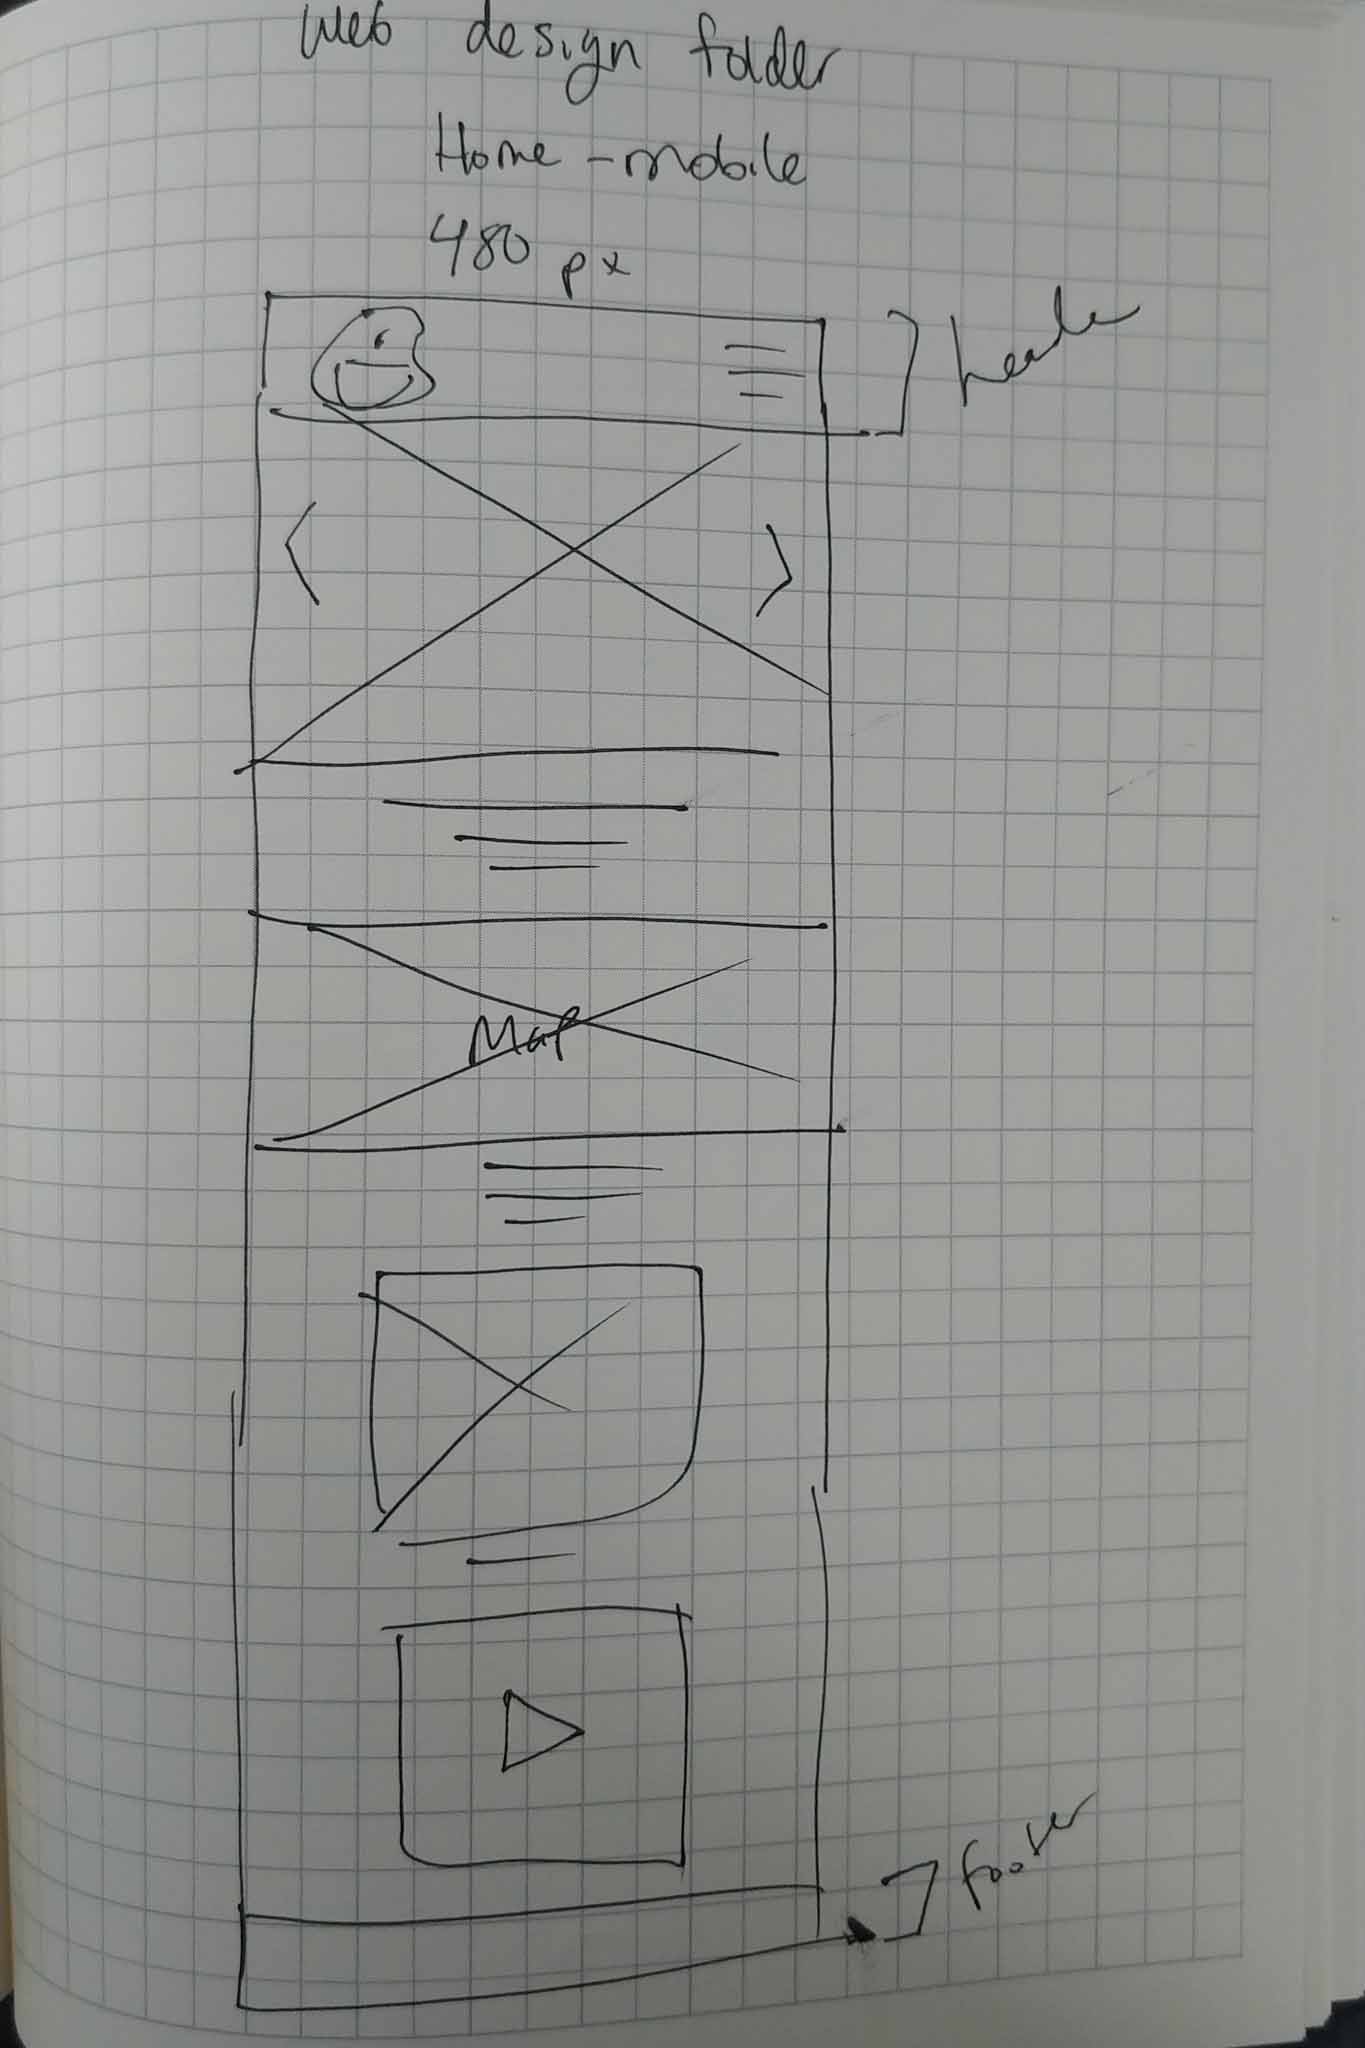 Web design folder
Home - mobile
480 px
header
Map
footer